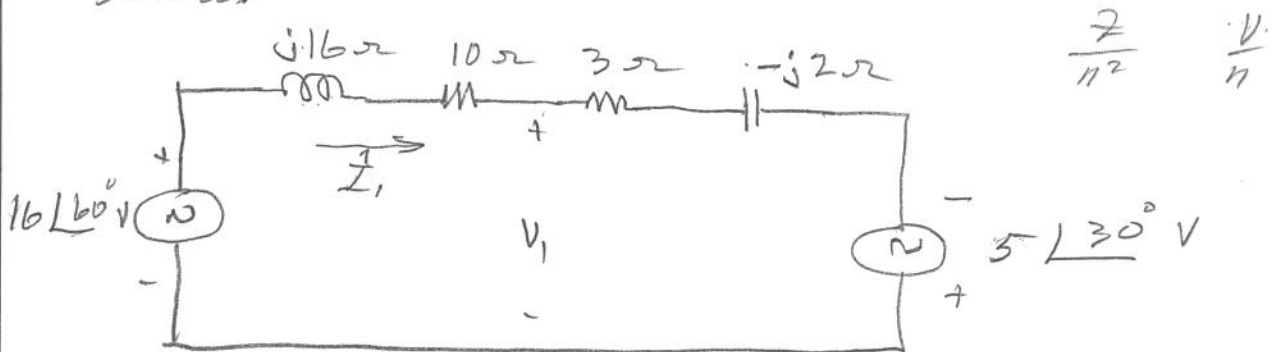 j16Ω 10Ω 3Ω -j2Ω
Z/n² V/n
+
I₁
+
16∠60° V
-
V₁
-
-
5∠30° V
+